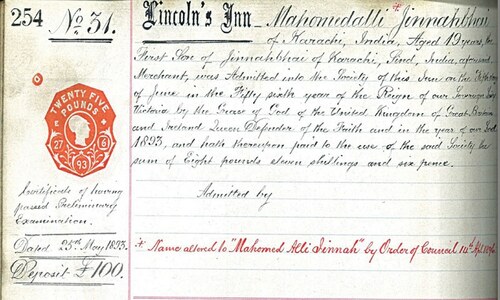 254 No. 31.
Lincoln's Inn - Mahomedalli * Jinnahbhai
of Karachi, India, Aged 19 years, the
First Son of Jinnahbhai of Karachi, Sind, India, aforesaid
Merchant, was Admitted into the Society of this Inn on the
of June in the Fifty sixth year of the Reign of our Sovereign Lady
Victoria by the Grace of God of the United Kingdom of Great Britain
and Ireland Queen Defender of the Faith and in the year of our Lord
1893, and hath thereupon paid to the use of the said Society the
sum of Eight pounds eleven shillings and six pence.
Admitted by
TWENTY FIVE
POUNDS
27 6
93
Certificate of having
passed Preliminary
Examination.
Dated 25th May 1893.
Deposit £100.
* Name altered to "Mahomed Alli Jinnah" by Order of Council 14th Apl 1896